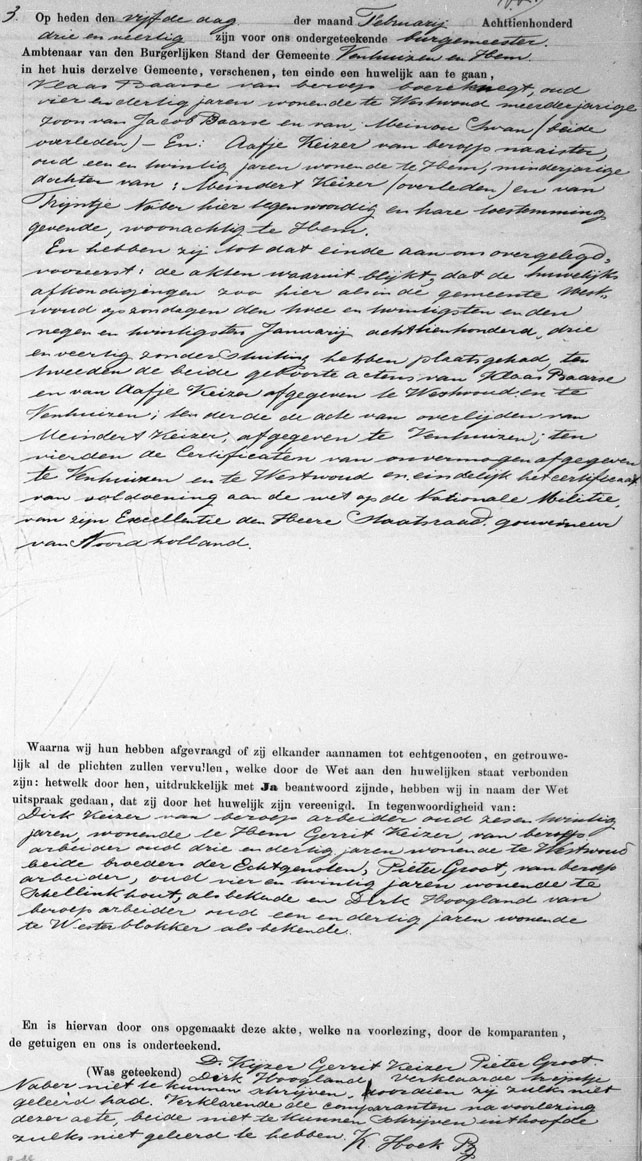 3. Op heden den vijfde dag der maand Februarij Achttienhonderd
drie en veertig zijn voor ons ondergeteekende burgemeester.
Ambtenaar van den Burgerlijken Stand der Gemeente Venhuizen en Hem
in het huis derzelve Gemeente, verschenen, ten einde een huwelijk aan te gaan,
Klaas Baarse van beroep boereknegt, oud
vier en dertig jaren wonende te Westwoud meerderjarige
zoon van Jacob Baarse en van, Meinou Swan (beide
overleden) – En: Aafje Keizer van beroep naaister,
oud een en twintig jaren wonende te Hem, minderjarige
dochter van: Meindert Keizer (overleden) en van
Trijntje Naber hier tegenwoordig en hare toestemming
gevende, woonachtig te Hem.
En hebben zij tot dat einde aan ons overgelegd,
vooreerst: de akten waaruit blijkt, dat de huwelijks
afkondigingen zoo hier als in de gemeente West-
woud op zondagen den twee en twintigsten en den
negen en twintigsten Januarij achttienhonderd, drie
en veertig zonder stuiting hebben plaatsgehad, ten
tweeden de beide geboorte actens van Klaas Baarse
en van Aafje Keizer afgegeven te Westwoud en te
Venhuizen; ten derde de acte van overlijden van
Meindert Keizer, afgegeven te Venhuizen; ten
vierden de Certificaten van onvermogen afgegeven
te Venhuizen en te Westwoud en eindelijk het certificaat
van voldoening aan de wet op de Nationale Militie,
van zijn Excellentie den Heere Staatsraad. gouverneur
van Noordholland.
Waarna wij hun hebben afgevraagd of zij elkander aannamen tot echtgenooten, en getrouwe-
lijk al de plichten zullen vervullen, welke door de Wet aan den huwelijken staat verbonden
zijn: hetwelk door hen, uitdrukkelijk met Ja beantwoord zijnde, hebben wij in naam der Wet
uitspraak gedaan, dat zij door het huwelijk zijn vereenigd. In tegenwoordigheid van:
Dirk Keizer van beroep arbeider oud zes en twintig
jaren, wonende te Hem Gerrit Keizer, van beroep
arbeider oud drie en dertig jaren wonende te Westwoud
beide broeders der Echtgenoten, Pieter Groot, van beroep
arbeider, oud vier en twintig jaren wonende te
Schellinkhout, als bekende en Dirk Hoogland van
beroep arbeider oud een en dertig jaren wonende
te Westerblokker als bekende.
En is hiervan door ons opgemaakt deze akte, welke na voorlezing, door de komparanten,
de getuigen en ons is onderteekend.
D. Kijzer Gerrit Keizer Pieter Groot
(Was geteekend) Dirk Hoogland verklaarde Trijntje
Naber niet te kunnen schrijven, doordien zij zulks niet
geleerd had. Verklarende de comparanten na voorlezing
dezer acte, beide niet te kunnen schrijven uithoofde
zulks niet geleerd te hebben. K. Hoek